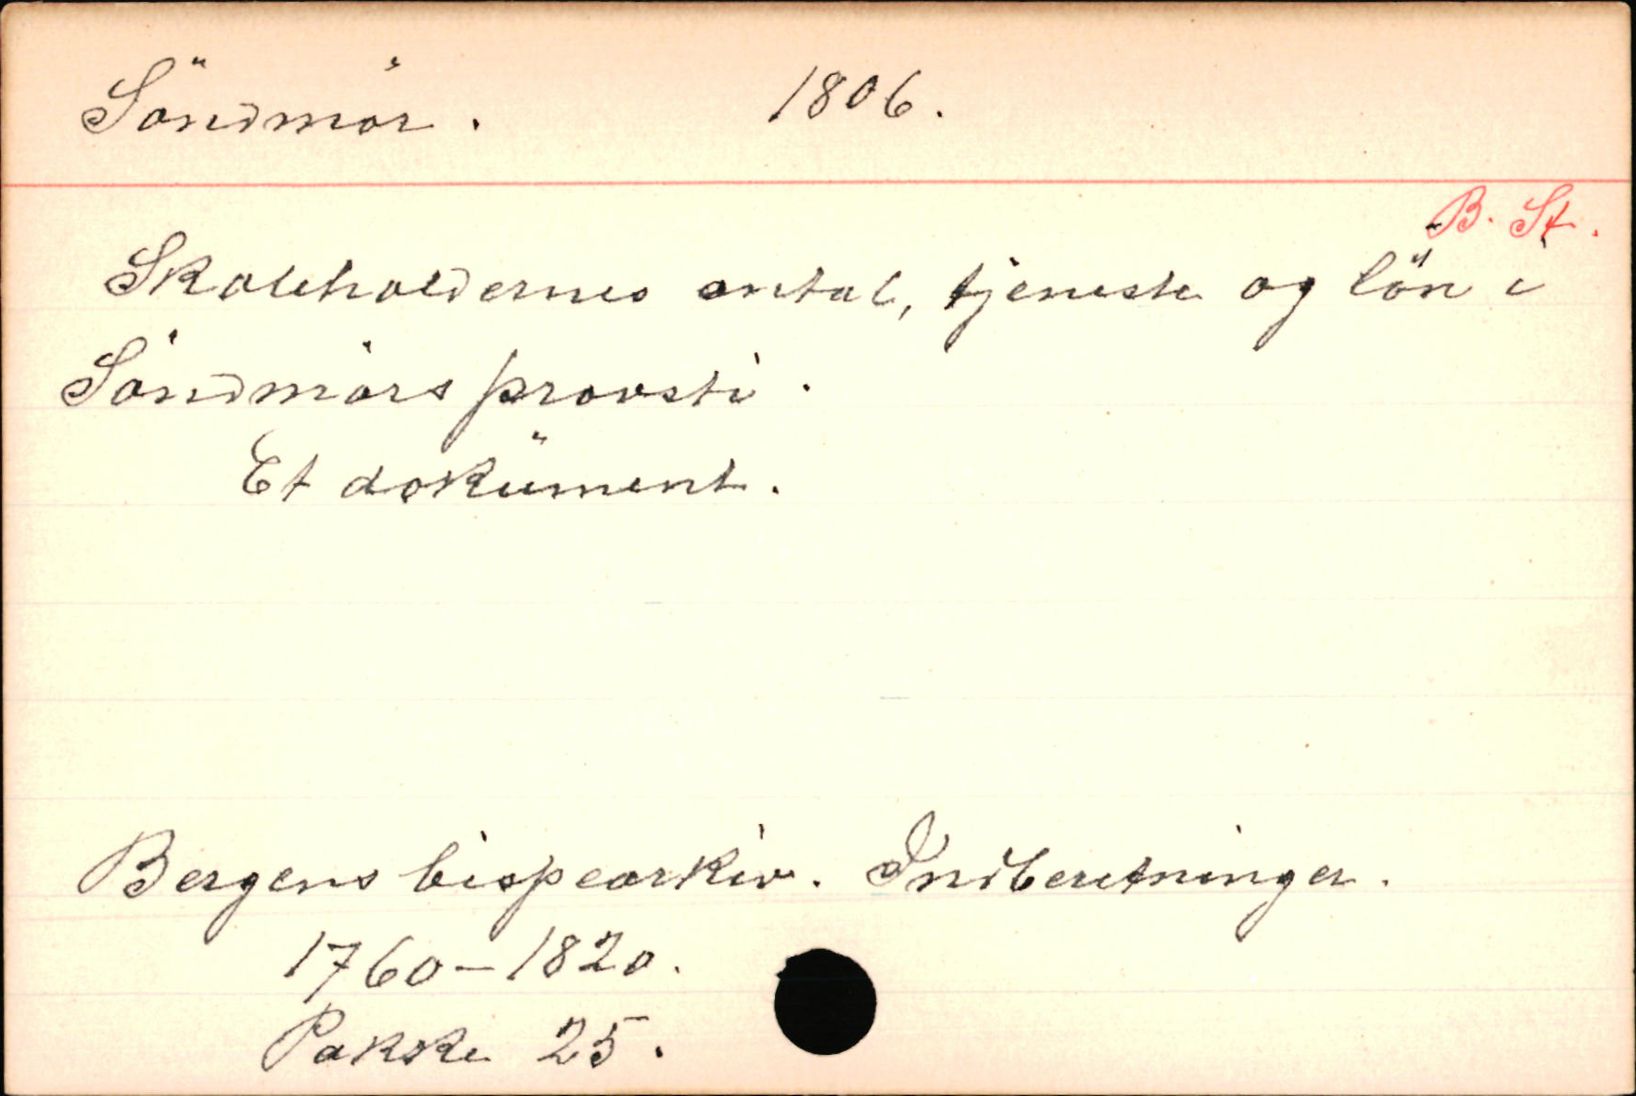 Söndmör. 1806.
B. St.
Skoleholdernes antal, tjeneste og lön i
Söndmörs provsti.
Et doküment.
Bergens bispearkiv. Indberetninger.
1760-1820.
Pakke 25.